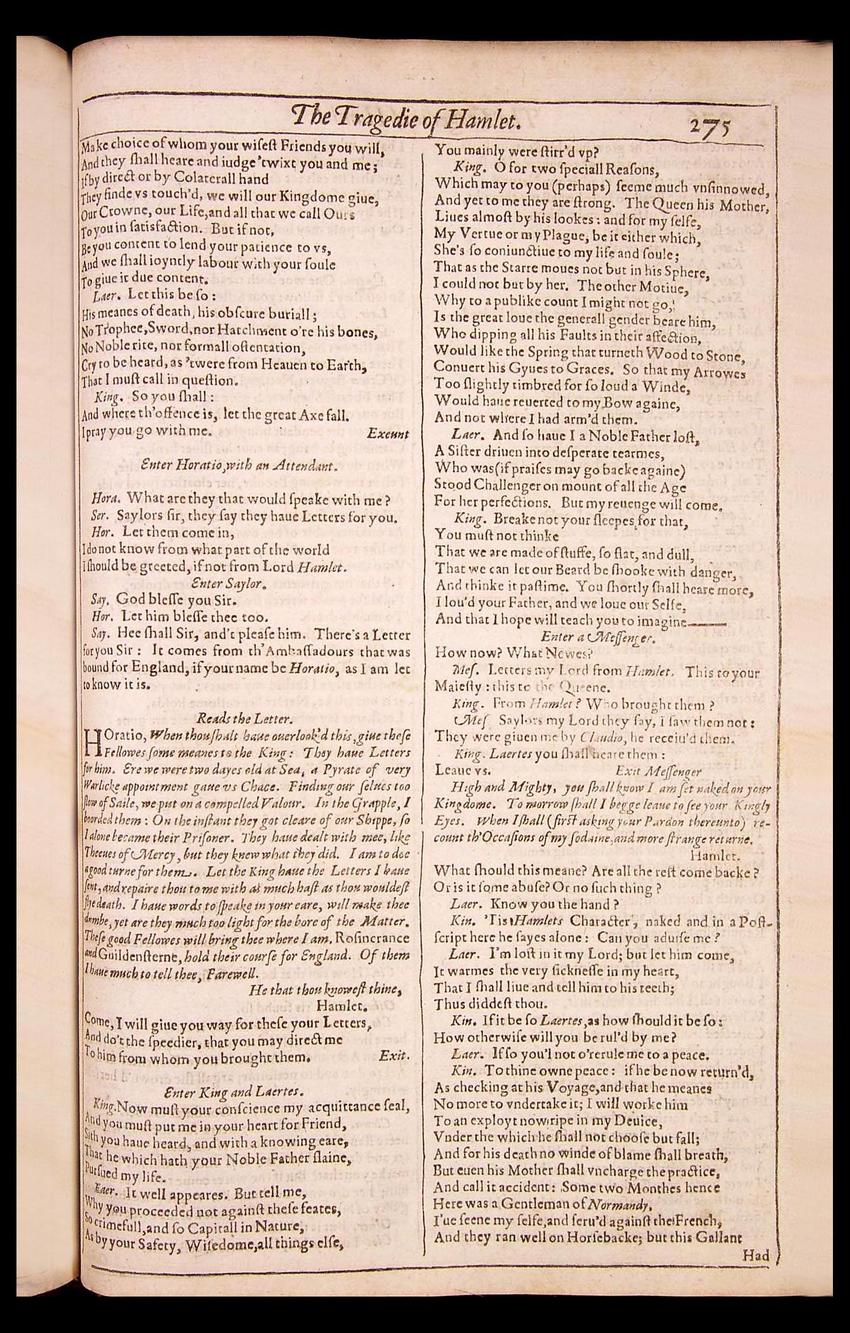 The Tragedie of Hamlet.
275
Make choice of whom your wiſeſt Friends you will,
And they ſhall heare and iudge 'twixt you and me;
If by direct or by Colaterall hand
They finde vs touch'd, we will our Kingdome giue,
Our Crowne, our Life, and all that we call Ours
To you in ſatisfaction. But if not,
Be you content to lend your patience to vs,
And we ſhall ioyntly labour with your ſoule
To giue it due content.
Laer. Let this be ſo:
His meanes of death, his obſcure buriall;
No Trophee, Sword, nor Hatchment o're his bones,
No Noble rite, nor formall oſtentation,
Cry to be heard, as 'twere from Heauen to Earth,
That I muſt call in queſtion.
King. So you ſhall:
And where th'offence is, let the great Axe fall.
I pray you go with me. Exeunt
Enter Horatio, with an Attendant.
Hora. What are they that would ſpeake with me?
Ser. Saylors ſir, they ſay they haue Letters for you.
Hor. Let them come in,
I do not know from what part of the world
I ſhould be greeted, if not from Lord Hamlet.
Enter Saylor.
Say. God bleſſe you Sir.
Hor. Let him bleſſe thee too.
Say. Hee ſhall Sir, and't pleaſe him. There's a Letter
for you Sir: It comes from th'Ambaſſadours that was
bound for England, if your name be Horatio, as I am let
to know it is.
Reads the Letter.
HOratio, When thou ſhalt haue ouerlook'd this, giue theſe
Fellowes ſome meanes to the King: They haue Letters
for him. Ere we were two dayes old at Sea, a Pyrate of very
Warlicke appointment gaue vs Chace. Finding our ſelues too
ſlow of Saile, we put on a compelled Valour. In the Grapple, I
boorded them: On the inſtant they got cleare of our Shippe, ſo
I alone became their Priſoner. They haue dealt with mee, like
Theeues of Mercy, but they knew what they did. I am to doe
a good turne for them. Let the King haue the Letters I haue
ſent, and repaire thou to me with as much haſt as thou wouldeſt
flye death. I haue words to ſpeake in your eare, will make thee
dumbe, yet are they much too light for the bore of the Matter.
Theſe good Fellowes will bring thee where I am. Roſincrance
and Guildenſterne, hold their courſe for England. Of them
I haue much to tell thee, Farewell.
He that thou knoweſt thine,
Hamlet.
Come, I will giue you way for theſe your Letters,
And do't the ſpeedier, that you may direct me
To him from whom you brought them. Exit.
Enter King and Laertes.
King. Now muſt your conſcience my acquittance ſeal,
And you muſt put me in your heart for Friend,
Sith you haue heard, and with a knowing eare,
That he which hath your Noble Father ſlaine,
Purſued my life.
Laer. It well appeares. But tell me,
Why you proceeded not againſt theſe feates,
So crimefull, and ſo Capitall in Nature,
As by your Safety, Wiſedome, all things elſe,
You mainly were ſtirr'd vp?
King. O for two ſpeciall Reaſons,
Which may to you (perhaps) ſeeme much vnſinnowed,
And yet to me they are ſtrong. The Queen his Mother,
Liues almoſt by his lookes: and for my ſelfe,
My Vertue or my Plague, be it either which,
She's ſo coniunctiue to my life and ſoule;
That as the Starre moues not but in his Sphere,
I could not but by her. The other Motiue,
Why to a publike count I might not go,
Is the great loue the generall gender beare him,
Who dipping all his Faults in their affection,
Would like the Spring that turneth Wood to Stone,
Conuert his Gyues to Graces. So that my Arrowes
Too ſlightly timbred for ſo loud a Winde,
Would haue reuerted to my Bow againe,
And not where I had arm'd them.
Laer. And ſo haue I a Noble Father loſt,
A Siſter driuen into deſperate tearmes,
Who was (if praiſes may go backe againe)
Stood Challenger on mount of all the Age
For her perfections. But my reuenge will come.
King. Breake not your ſleepes for that,
You muſt not thinke
That we are made of ſtuffe, ſo flat, and dull,
That we can let our Beard be ſhooke with danger,
And thinke it paſtime. You ſhortly ſhall heare more,
I lou'd your Father, and we loue our Selfe,
And that I hope will teach you to imagine——
Enter a Meſſenger.
How now? What Newes?
Meſ. Letters my Lord from Hamlet. This to your
Maieſty: this to the Queene.
King. From Hamlet? Who brought them?
Meſ. Saylors my Lord they ſay, I ſaw them not:
They were giuen me by Claudio, he receiu'd them.
King. Laertes you ſhall heare them:
Leaue vs. Exit Meſſenger
High and Mighty, you ſhall know I am ſet naked on your
Kingdome. To morrow ſhall I begge leaue to ſee your Kingly
Eyes. When I ſhall (firſt asking your Pardon thereunto) re-
count th'Occaſions of my ſodaine, and more ſtrange returne.
Hamlet.
What ſhould this meane? Are all the reſt come backe?
Or is it ſome abuſe? Or no ſuch thing?
Laer. Know you the hand?
Kin. 'Tis Hamlets Character, naked and in a Poſt-
ſcript here he ſayes alone: Can you aduiſe me?
Laer. I'm loſt in it my Lord; but let him come,
It warmes the very ſickneſſe in my heart,
That I ſhall liue and tell him to his teeth;
Thus diddeſt thou.
Kin. If it be ſo Laertes, as how ſhould it be ſo:
How otherwiſe will you be rul'd by me?
Laer. If ſo you'l not o'rerule me to a peace.
Kin. To thine owne peace: if he be now return'd,
As checking at his Voyage, and that he meanes
No more to vndertake it; I will worke him
To an exployt now ripe in my Deuice,
Vnder the which he ſhall not chooſe but fall;
And for his death no winde of blame ſhall breath,
But euen his Mother ſhall vncharge the practice,
And call it accident: Some two Monthes hence
Here was a Gentleman of Normandy,
I'ue ſeene my ſelfe, and ſeru'd againſt the French,
And they ran well on Horſebacke; but this Gallant
Had